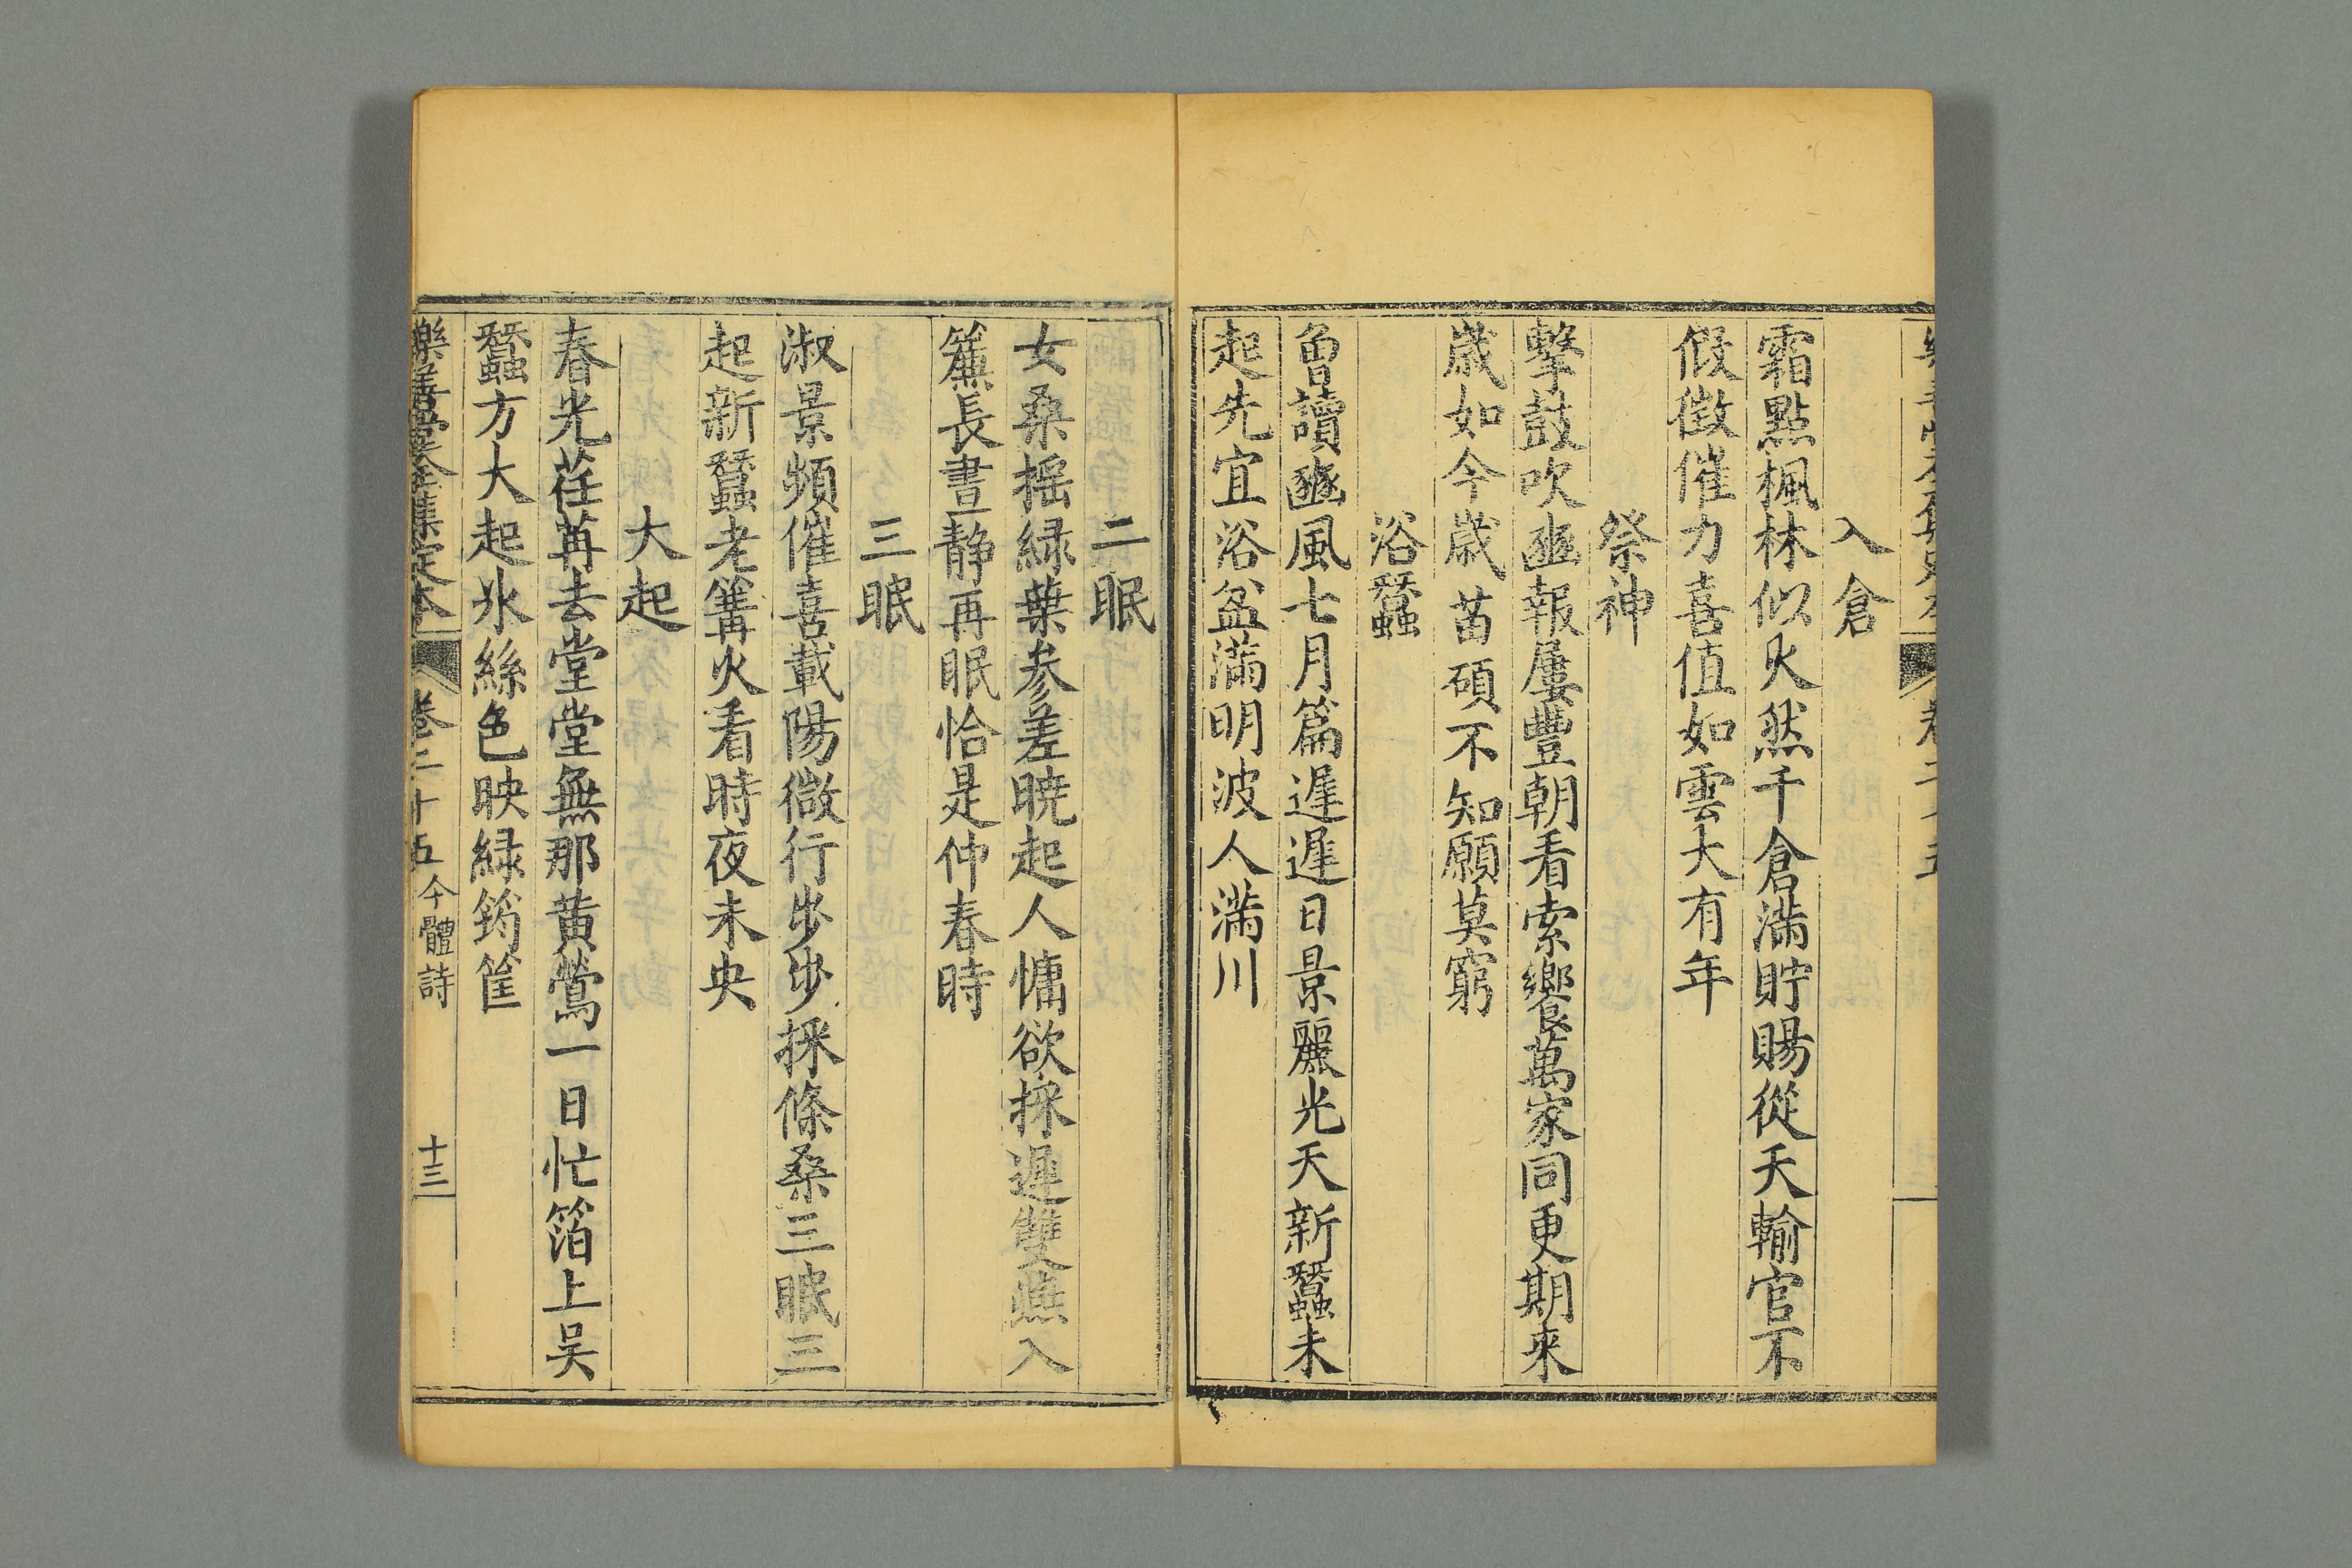 入倉
霜點楓林似火然千倉滿貯賜從天輸官不
假徴催力喜值如雲大有年
祭神
擊鼓吹豳報屢豐朝看索饗萬家同更期來
歲如今歲苗碩不知願莫窮
浴蠶
曾讀豳風七月篇遲遲日景麗光天新蠶未
起先宜浴盆滿明波人滿川
二眠
女桑摇緑葉參差曉起人慵欲採遲雙燕入
簾長晝静再眠恰是仲春時
三眠
淑景頻催喜載陽微行步步採條桑三眠三
起新蠶老篝火看時夜未央
大起
春光荏苒去堂堂無那黄鶯一日忙箔上吴
蠶方大起氷絲色映緑筠筐
樂善堂全集定本 卷二十五 今體詩 十三